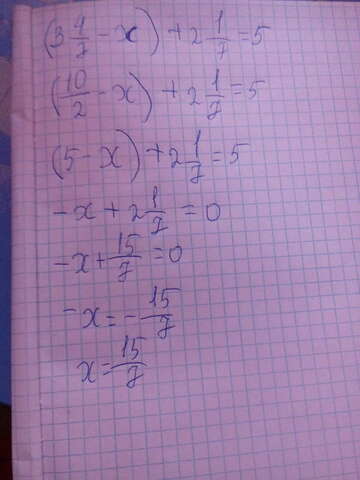 (3 4/7 - x) + 2 1/7 = 5
(10/2 - x) + 2 1/7 = 5
(5 - x) + 2 1/7 = 5
-x + 2 1/7 = 0
-x + 15/7 = 0
-x = - 15/7
x = 15/7